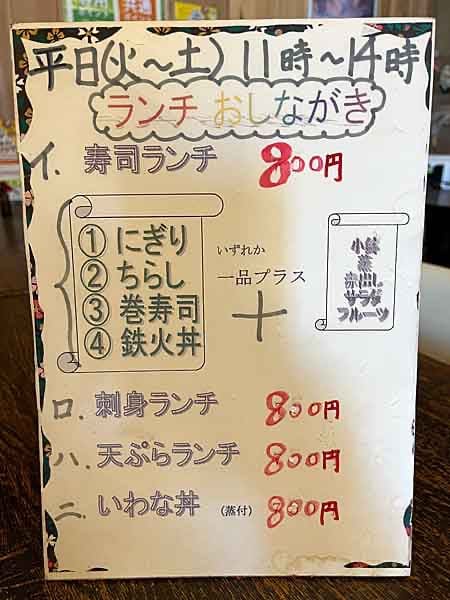 平日(火～土) 11時～14時
ランチ おしながき
イ. 寿司ランチ 800円
① にぎり
② ちらし
③ 巻寿司
④ 鉄火丼
いずれか
一品プラス
＋
小鉢
蒸
赤出し
サラダ
フルーツ
ロ. 刺身ランチ 800円
ハ. 天ぷらランチ 800円
ニ. いわな丼 (蒸付) 800円